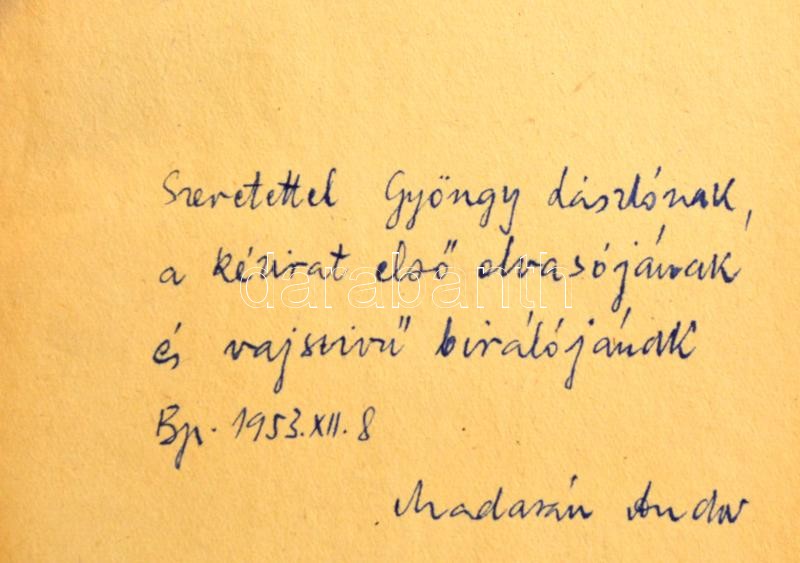 Szeretettel Gyöngy Lászlónak,
a kézirat első olvasójának
darabanth
és vajszivű birálójának
Bp. 1953.XII.8
Madarász Andor